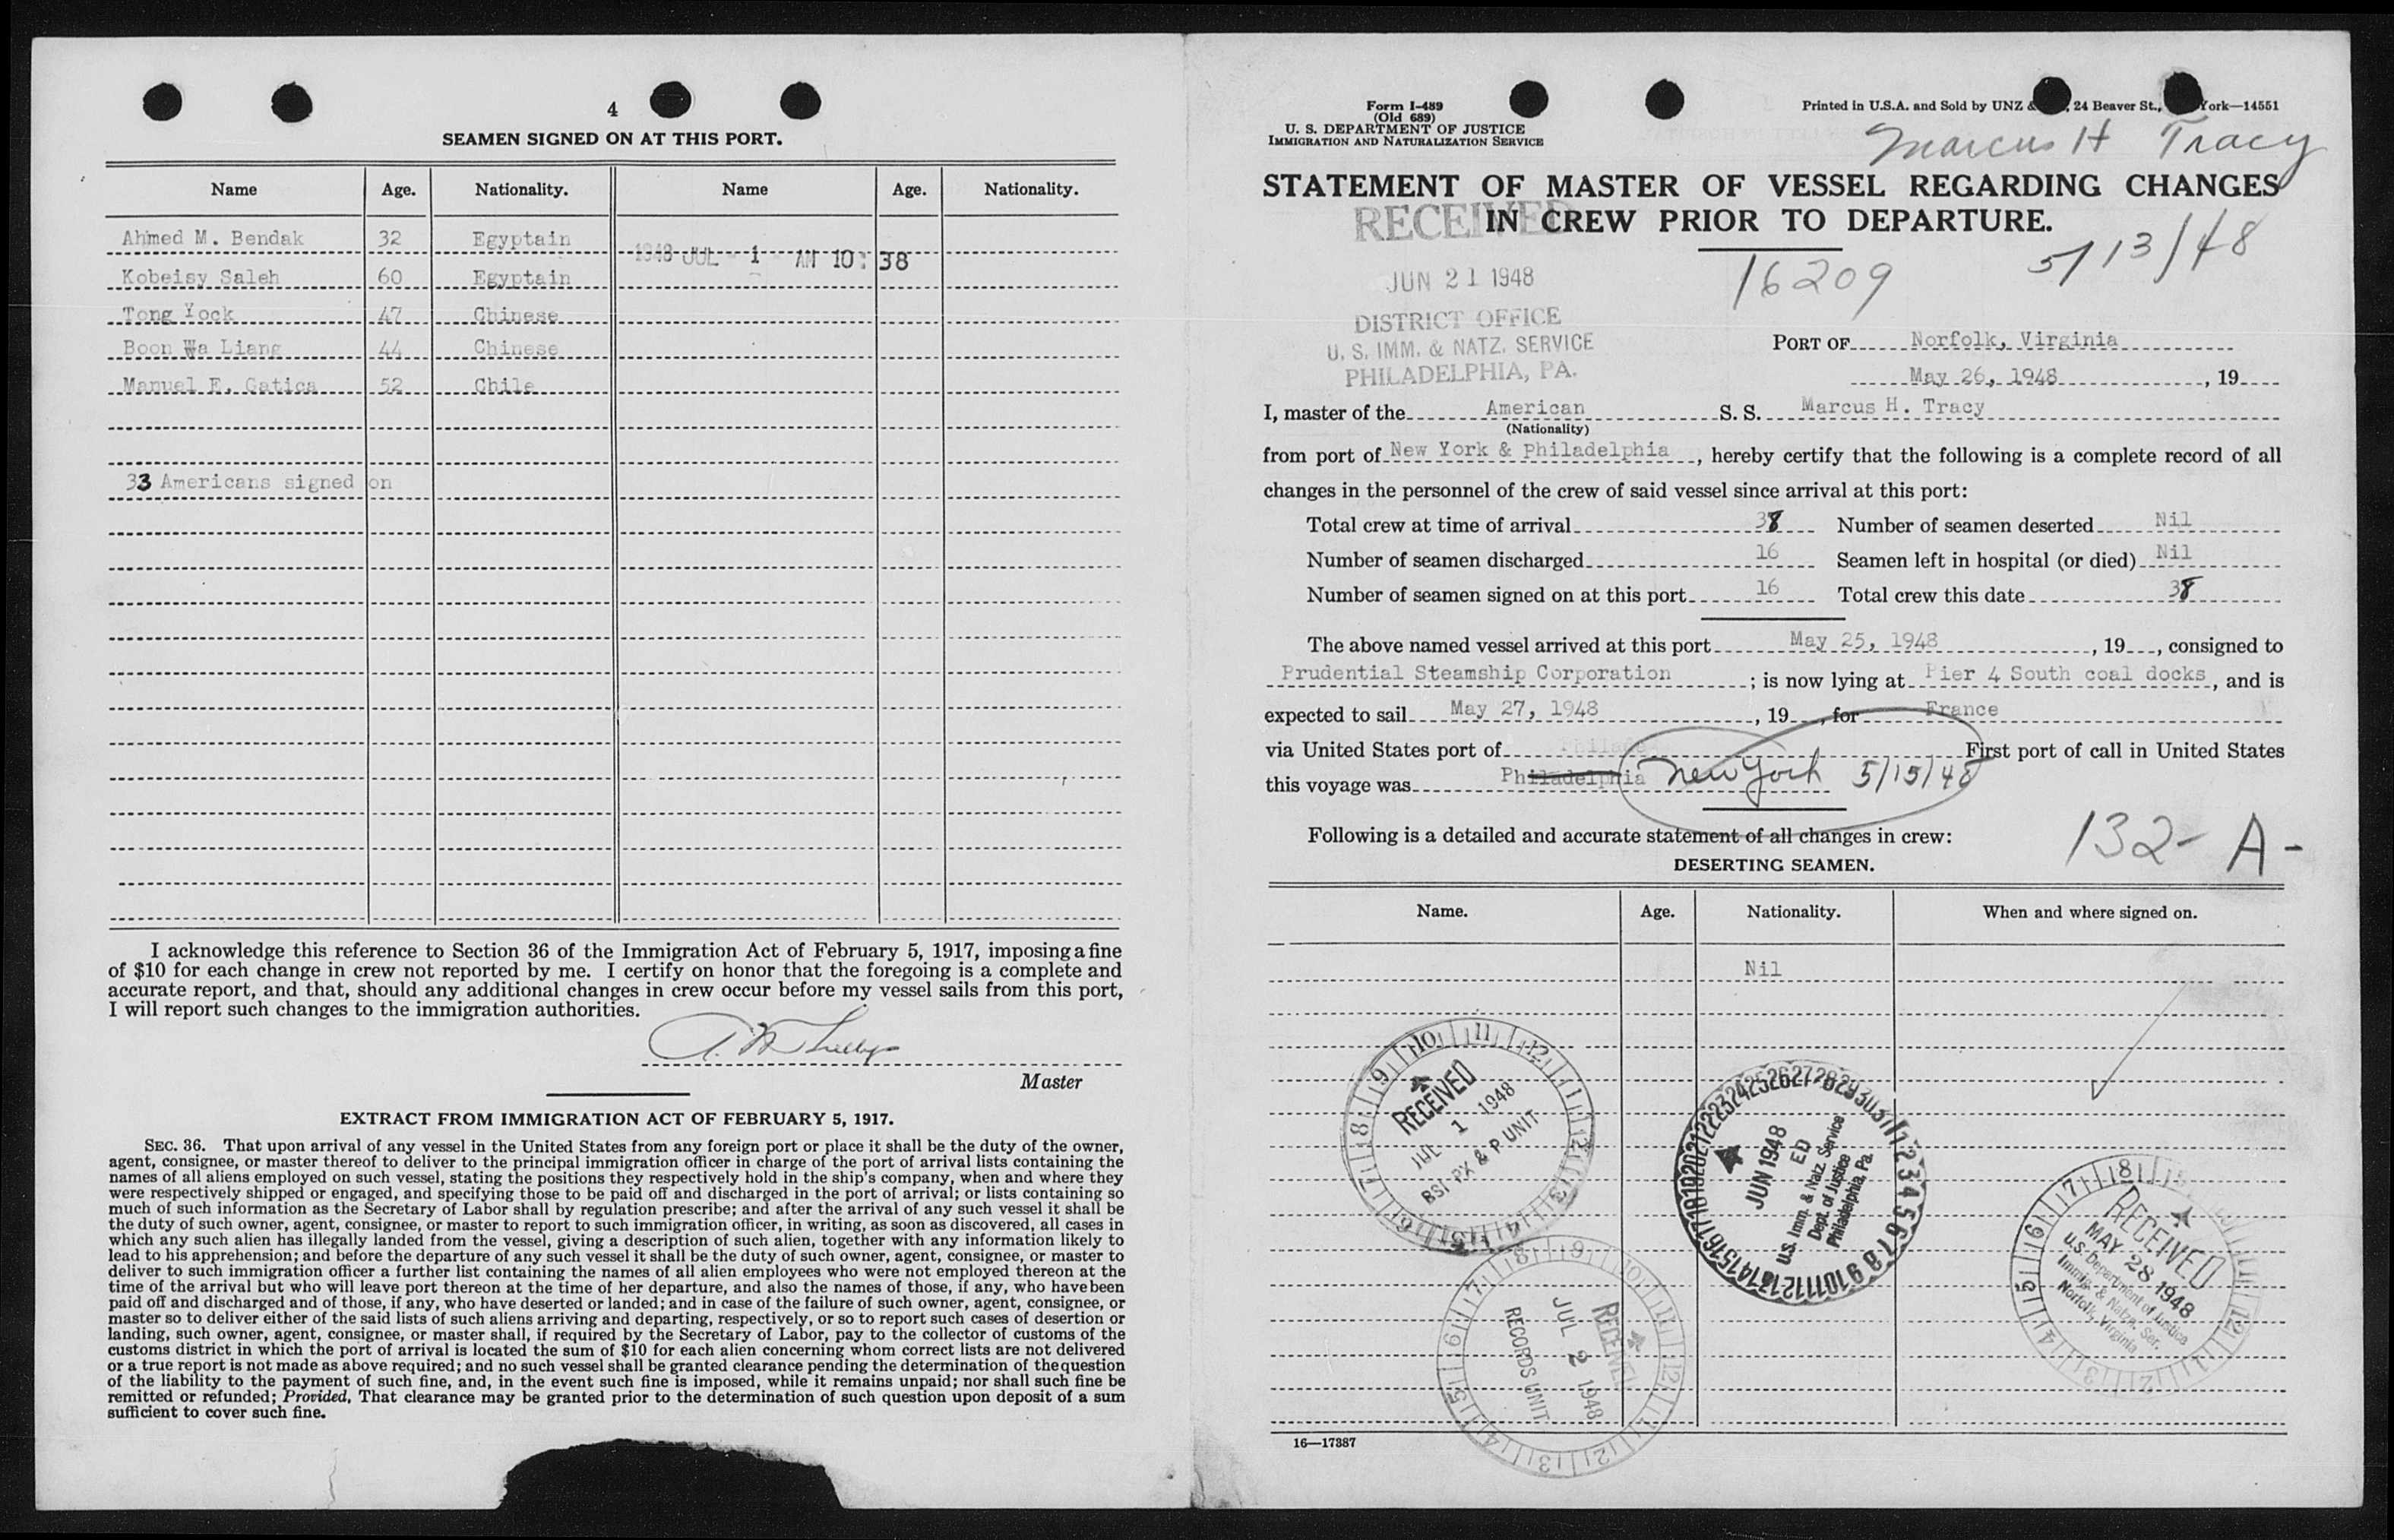 4
SEAMEN SIGNED ON AT THIS PORT.
Name Age. Nationality. Name Age. Nationality.
Ahmed M. Bendak 32 Egyptain
1948 JUL - 1 AM 10: 38
Kobeisy Saleh 60 Egyptain
Tong Yock 47 Chinese
Boon Wa Liang 44 Chinese
Manuel E. Gatica 52 Chile
33 Americans signed on
I acknowledge this reference to Section 36 of the Immigration Act of February 5, 1917, imposing a fine
of $10 for each change in crew not reported by me. I certify on honor that the foregoing is a complete and
accurate report, and that, should any additional changes in crew occur before my vessel sails from this port,
I will report such changes to the immigration authorities.
Master
EXTRACT FROM IMMIGRATION ACT OF FEBRUARY 5, 1917.
SEC. 36. That upon arrival of any vessel in the United States from any foreign port or place it shall be the duty of the owner,
agent, consignee, or master thereof to deliver to the principal immigration officer in charge of the port of arrival lists containing the
names of all aliens employed on such vessel, stating the positions they respectively hold in the ship's company, when and where they
were respectively shipped or engaged, and specifying those to be paid off and discharged in the port of arrival; or lists containing so
much of such information as the Secretary of Labor shall by regulation prescribe; and after the arrival of any such vessel it shall be
the duty of such owner, agent, consignee, or master to report to such immigration officer, in writing, as soon as discovered, all cases in
which any such alien has illegally landed from the vessel, giving a description of such alien, together with any information likely to
lead to his apprehension; and before the departure of any such vessel it shall be the duty of such owner, agent, consignee, or master to
deliver to such immigration officer a further list containing the names of all alien employees who were not employed thereon at the
time of the arrival but who will leave port thereon at the time of her departure, and also the names of those, if any, who have been
paid off and discharged and of those, if any, who have deserted or landed; and in case of the failure of such owner, agent, consignee, or
master so to deliver either of the said lists of such aliens arriving and departing, respectively, or so to report such cases of desertion or
landing, such owner, agent, consignee, or master shall, if required by the Secretary of Labor, pay to the collector of customs of the
customs district in which the port of arrival is located the sum of $10 for each alien concerning whom correct lists are not delivered
or a true report is not made as above required; and no such vessel shall be granted clearance pending the determination of the question
of the liability to the payment of such fine, and, in the event such fine is imposed, while it remains unpaid; nor shall such fine be
remitted or refunded; Provided, That clearance may be granted prior to the determination of such question upon deposit of a sum
sufficient to cover such fine.
Form I-489
(Old 689)
U. S. DEPARTMENT OF JUSTICE
IMMIGRATION AND NATURALIZATION SERVICE
Printed in U.S.A. and Sold by UNZ & 24 Beaver St., York—14551
Marcus H Tracy
STATEMENT OF MASTER OF VESSEL REGARDING CHANGES
IN CREW PRIOR TO DEPARTURE.
RECEIVED
JUN 21 1948
DISTRICT OFFICE
U. S. IMM. & NATZ. SERVICE
PHILADELPHIA, PA.
16209
5/13/48
PORT OF Norfolk, Virginia
May 26, 1948, 19
I, master of the American S. S. Marcus H. Tracy
(Nationality)
from port of New York & Philadelphia, hereby certify that the following is a complete record of all
changes in the personnel of the crew of said vessel since arrival at this port:
Total crew at time of arrival 38 Number of seamen deserted Nil
Number of seamen discharged 16 Seamen left in hospital (or died) Nil
Number of seamen signed on at this port 16 Total crew this date 38
The above named vessel arrived at this port May 25, 1948, 19, consigned to
Prudential Steamship Corporation; is now lying at Pier 4 South coal docks, and is
expected to sail May 27, 1948, 19, for France
via United States port of First port of call in United States
this voyage was Philadelphia New York 5/15/48
Following is a detailed and accurate statement of all changes in crew:
132- A-
DESERTING SEAMEN.
Name. Age. Nationality. When and where signed on.
Nil
RECEIVED
JUL 1 1948
BSI PX & P UNIT
JUN 1948
ED
U.S. Imm. & Natz. Service
Dept. of Justice
Philadelphia, Pa.
RECEIVED
MAY 28 1948
U.S. Department of Justice
Immig. & Natzn. Ser.
Norfolk, Virginia
RECEIVED
JUL 2 1948
RECORDS UNIT
16—17387